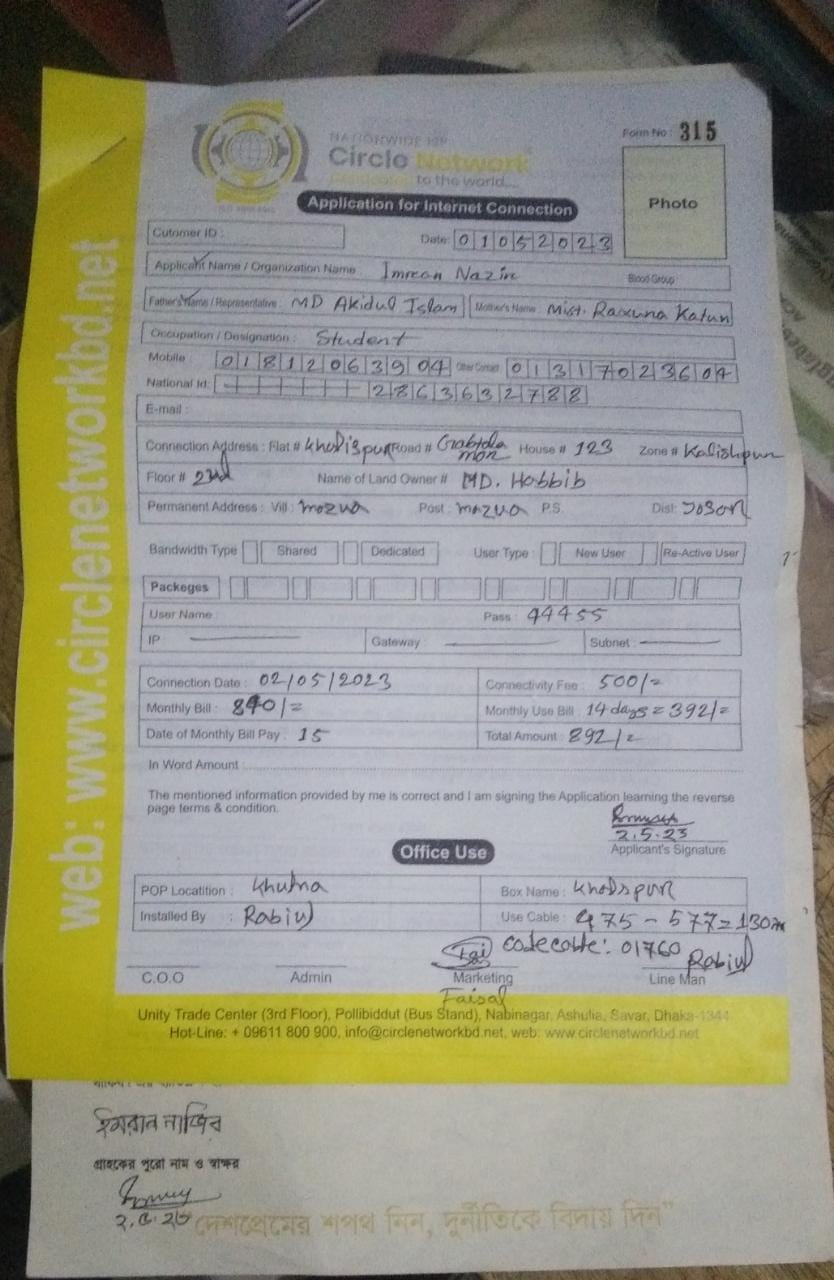 NATIONWIDE ISP
Form No : 315
Circle Network
to the world...
Photo
Application for Internet Connection
Cutomer ID :
Date: 01052023
Applicant Name / Organization Name Imran Nazir
Blood Group
Father's Name / Representative : MD Akidul Islam Mother's Name : Mist. Raxuna Katun
Occupation / Designation : Student
Mobile 01812063904 Other Contact 01317023604
National Id: 2863632788
E-mail :
Connection Address : Flat # Khalispur Road # House # 123 Zone # Kalishpur
Floor # 2nd Name of Land Owner # MD. Habbib
Permanent Address : Vill : mozua Post : mozua P.S. Dist: JoSor
Bandwidth Type Shared Dedicated User Type : New User Re-Active User
Packeges
User Name : Pass : 44455
IP : Gateway : Subnet :
Connection Date : 02/05/2023 Connectivity Fee : 500/=
Monthly Bill : 840/= Monthly Use Bill : 14 days = 392/=
Date of Monthly Bill Pay : 15 Total Amount : 892/=
In Word Amount :
The mentioned information provided by me is correct and I am signing the Application learning the reverse
page terms & condition.
2.5.23
Applicant's Signature
Office Use
POP Locatition : Khulna Box Name : Khalspur
Installed By : Rabiul Use Cable : 475 - 577 = 130m
code cable: 01760
Rabiul
C.O.O Admin Marketing Line Man
Faisal
Unity Trade Center (3rd Floor), Pollibiddut (Bus Stand), Nabinagar, Ashulia, Savar, Dhaka-1344
Hot-Line: + 09611 800 900, info@circlenetworkbd.net, web: www.circlenetworkbd.net
web: www.circlenetworkbd.net
ইমরান নাজির
গ্রাহকের পুরো নাম ও স্বাক্ষর
২.৫.২৩
"দেশপ্রেমের শপথ নিন, দুর্নীতিকে বিদায় দিন"